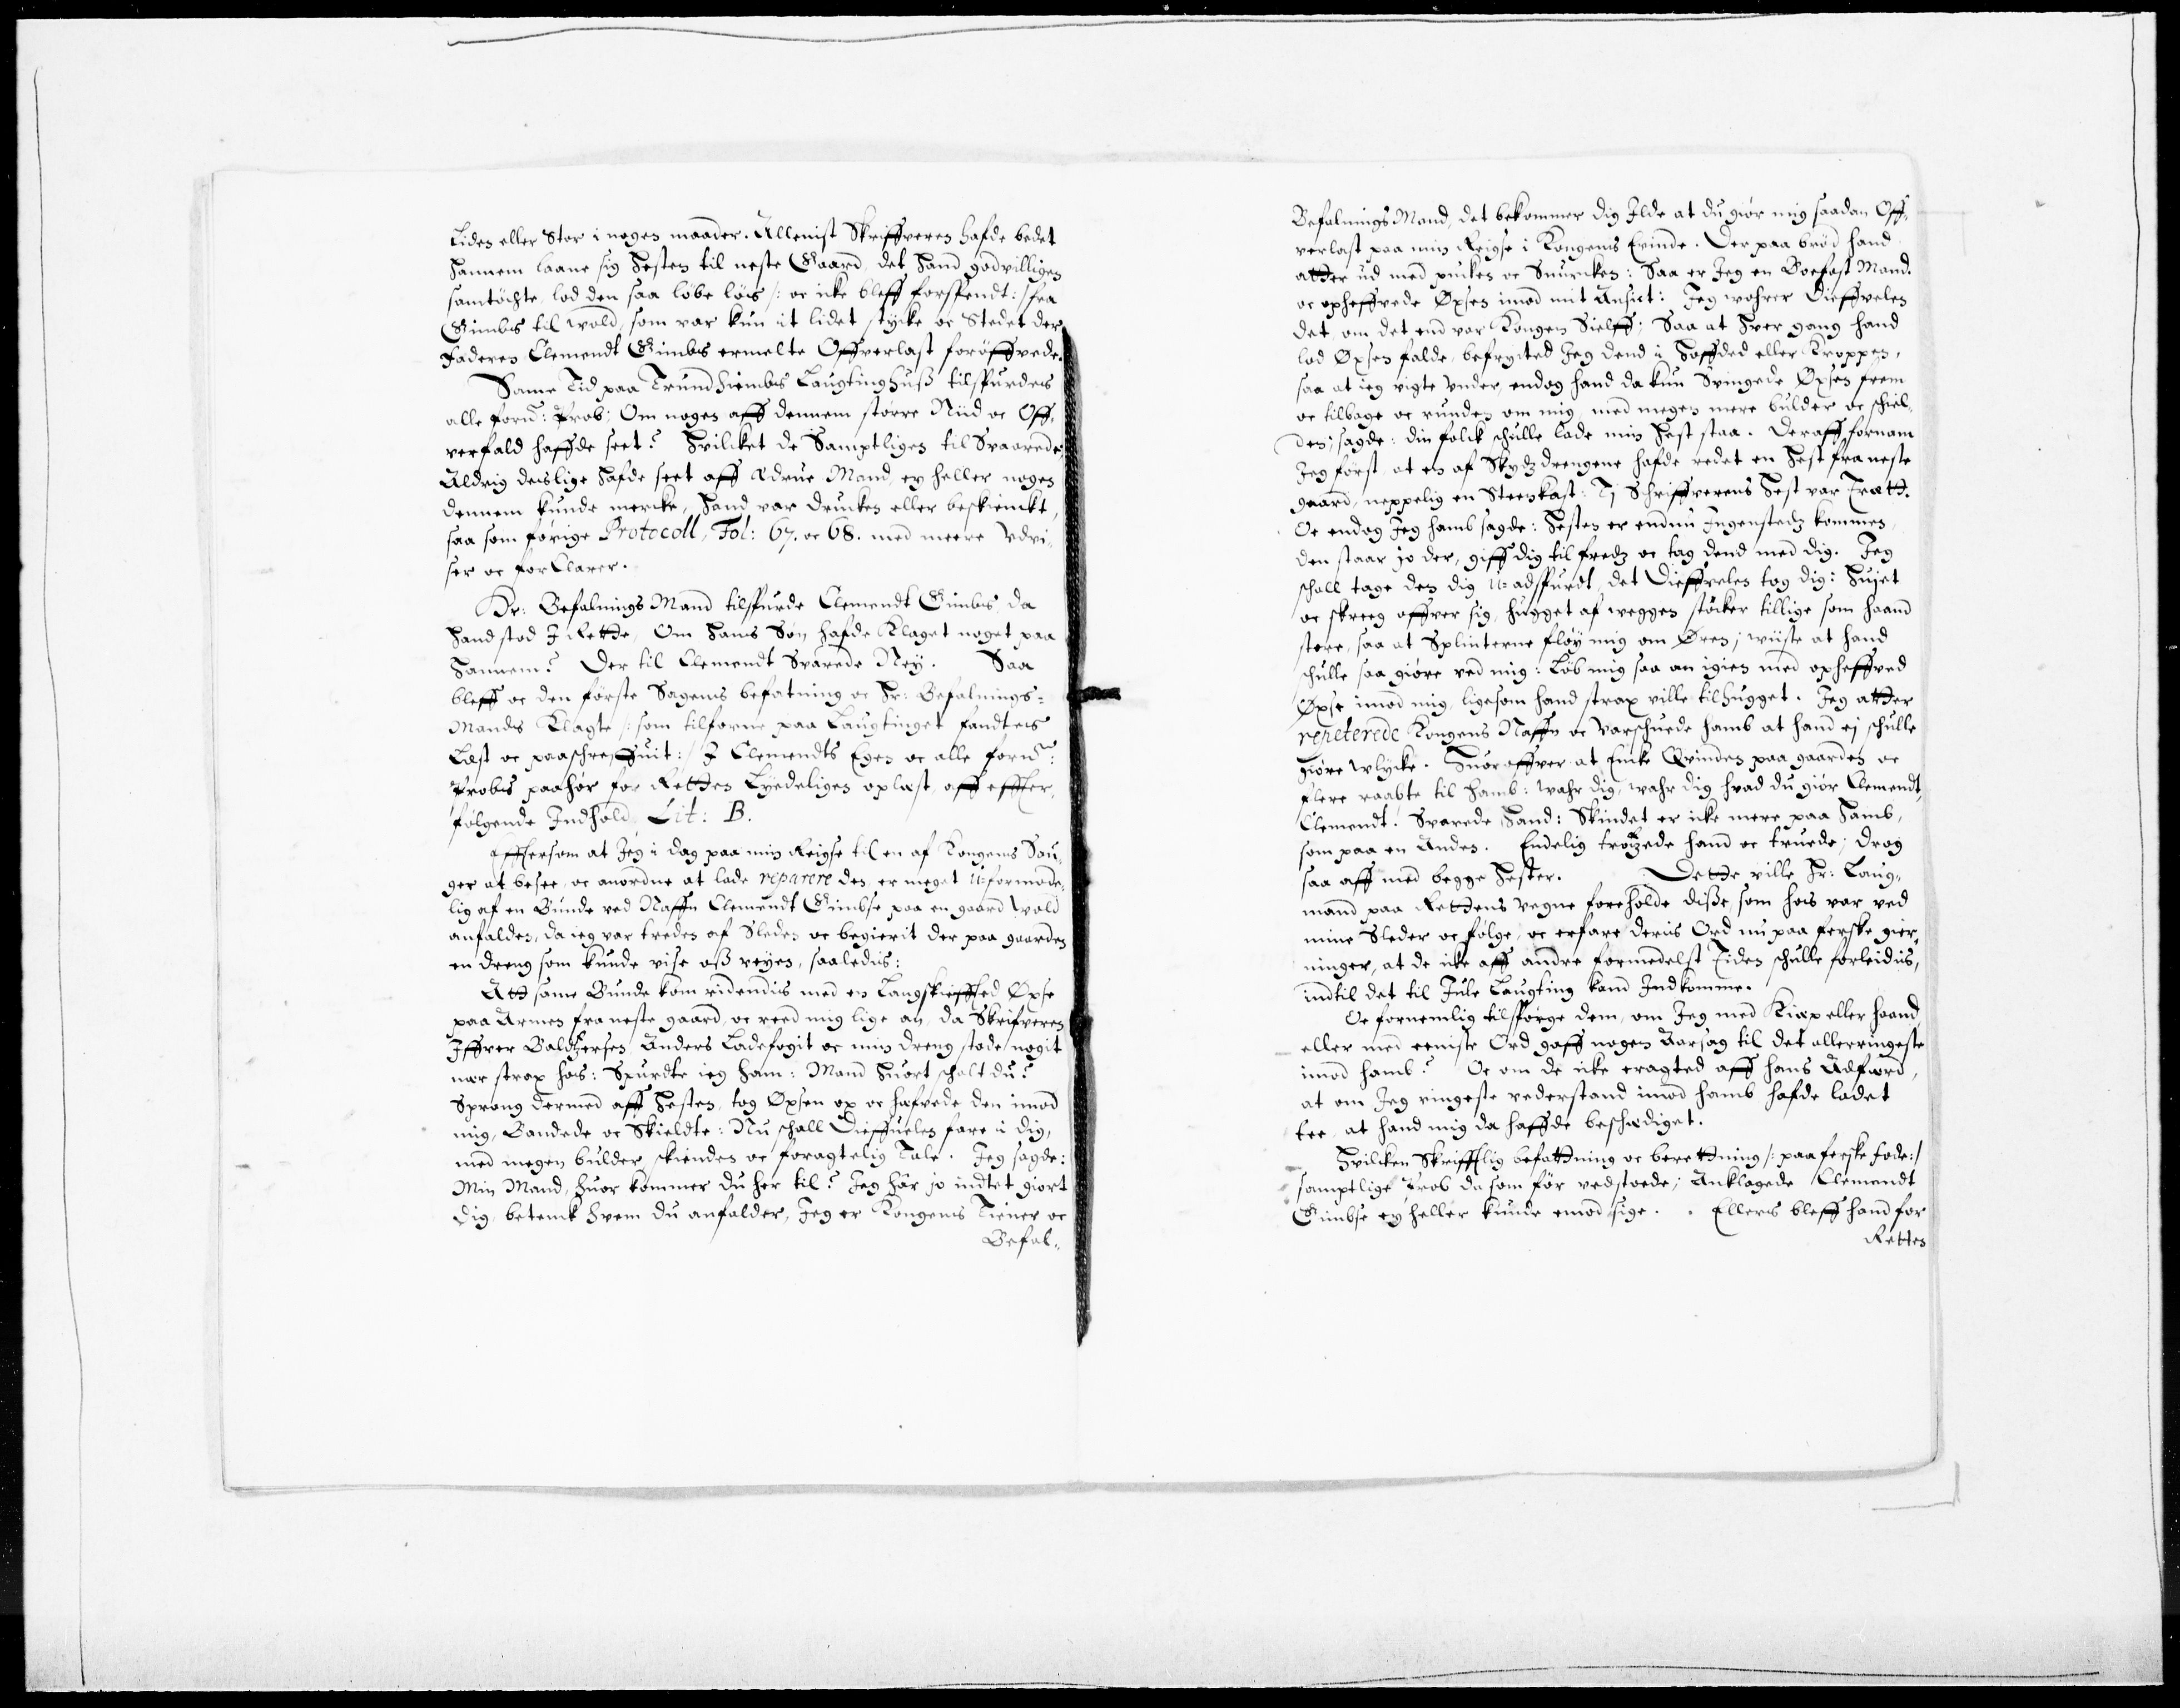 Liden eller Stor i nogen maader. Allenist Skriffveren hafde bedet
Hannem laane sig Hesten til neste Gaard, det Hand godvilligen
samtöchte, lod den saa löbe löes /: oc icke bleff forspendt: / fra
Gimbs til Wold, som var kun it lidet stycke oc Stedet der
Faderen Clemendt Gimbs ermelte Offverlast forøffvede.
Same Tid paa Trundhiembs Laugtinghuß tilspurdes
alle fornd: Prob; Om nogen aff dennem større Niid oc Off,
verfald haffde seet? Hvilcket de Samptligen til Svaarede,
Aldrig deslige Hafde seet aff Ædrue Mand, ey heller nogen
dennem kunde mercke, Hand var drucken eller beskiencket,
saa som førige Protocoll, Fol: 67. oc 68. med meere Udvi,
ser oc forClarer.
Hr: Befalnings Mand tilspurde Clemendt Gimbs, da
Hand stod I Rette, Om Hans Søn hafde Klaget noget paa
Hannem? Der til Clemendt Svarede Ney. Saa
bleff oc den første Sagens befatning oc Hr: Befalnings=
Mands Klagte /: som tilforne paa Laugtinget fandtes
Læst oc paaschreffuit: / I Clemendts Egen oc alle fornd:
Probs paahør for Retten Lydeligen oplæst, aff effter,
følgende Indhold Lit: B.
Efftersom at Jeg i dag paa min Reigse til en af Kongens Sau,
ger at besee, oc anordne at lade reparere den, er meget U=formode,
lig af en Bunde ved Naffn Clemendt Gimbse paa en gaard Wold
anfalden, da ieg var treden af Sleden oc begierit der paa gaarden
en dreng som kunde vise oß veyen, saaledis:
Att same Bunde kom ridendis med en Langskiefftted Øxse
paa Armen fra neste gaard, oc reed mig lige an, da Skrifveren
Iffver Baldtzersen, Anders Ladefogit oc min dreng stode nogit
nær strax hos: Spurdte ieg ham: Mand huort schalt du?
Sprang dermed aff Hesten, tog Øxsen op oc hafvede den imod
mig, Bandede oc Skieldte: Nu schall Dieffuelen fare i dig,
med megen bulder, skienden oc foragtelig Tale. Jeg sagde:
Min Mand, huor kommer du her til? Jeg har jo indtet giort
dig, betenck hvem du anfalder, Jeg er Kongens Tiener oc
Befal,,
Befalnings Mand, det bekommer dig Ilde at du giör mig saadan Off,
verlast paa min Reigse i Kongens Erinde. Der paa brød hand
atter ud med pucken oc Snurcken: Saa er Jeg en Boefast Mand.
oc opheffvede Øxsen imod mit Ansict: Jeg wohrer Dieffvelen
det, om det end var Kongen Sielff; Saa at Hver gang hand
lod Øxsen falde, befryctted Jeg dend i Hoffded eller Kroppen,
saa at ieg vigte under, endog hand da kun Svingede Øxsen frem
oc tilbage oc runden om mig, med megen mere bulder oc schiel,
den; sagde: din folck schulle lade min Hest staa. Deraff fornam
Jeg först at en af Skydzdrengene hafde redet en Hest fra neste
gaard, neppelig en Steenkast: Tj Schriffverens Hest var Trætt.
Oc endog Jeg hamb sagde: Hesten er endnu Ingenstedz kommen,
den staar jo der, giff dig til fredz oc tag dend med dig. Jeg
schall tage den dig U=adspurdt, det Dieffvelen tog dig: Hujet
oc skreeg offver sig, hugget af veggen støcker tillige som haand
store, saa at Splinterne fløy mig om Øren; wiiste at hand
schulle saa giøre ved mig: Løb mig saa an igien med opheffved
Øxse imod mig, ligesom hand strax ville tilhugget. Jeg atter
repeterede Kongens Naffn oc Varschuede hamb at hand ej schulle
giøre Ulycke. Huoroffver at Encke Qvinden paa gaarden oc
flere raabte til hamb: wahr dig, wahr dig hvad du giör Clemendt,
Clemendt! Svarede Hand: Skindet er icke mere paa Hamb,
som paa en Anden. Endelig trotzede hand oc truede; drog
saa aff med begge Hester. Dette ville Hr: Laug,
mand paa Rettens vegne foreholde diße, som hos var ved
mine Sleder oc følge, oc erfare deris Ord nu paa ferske gier,
ninger, at de icke aff andre formedelst Tiden schulle forleidis,
indtil det til Jule Laugting kand Indkomme.
Oc fornemlig tilspørge dem, om Jeg med Kiæp eller haand,
eller med eeniste Ord gaff nogen Aarsag til det allerringeste
imod hamb? Oc om de icke eragted aff hans Adfærd,
at om Jeg ringeste vederstand imod hamb hafde ladet
tee, at hand mig da haffde beschædiget.
Hvilcken Skrifftlig befattning oc berettning /: paa ferske fode: /
samptlige Prob da som før vedstoede; Anklagede Clemendt
Gimbse ey heller kunde emod sige. Ellers bleff hand for
Retten